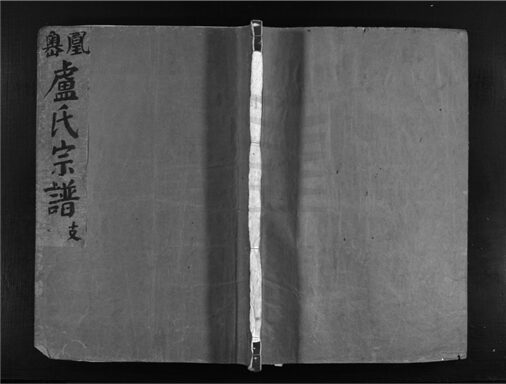 凰嶴
盧氏宗譜
支